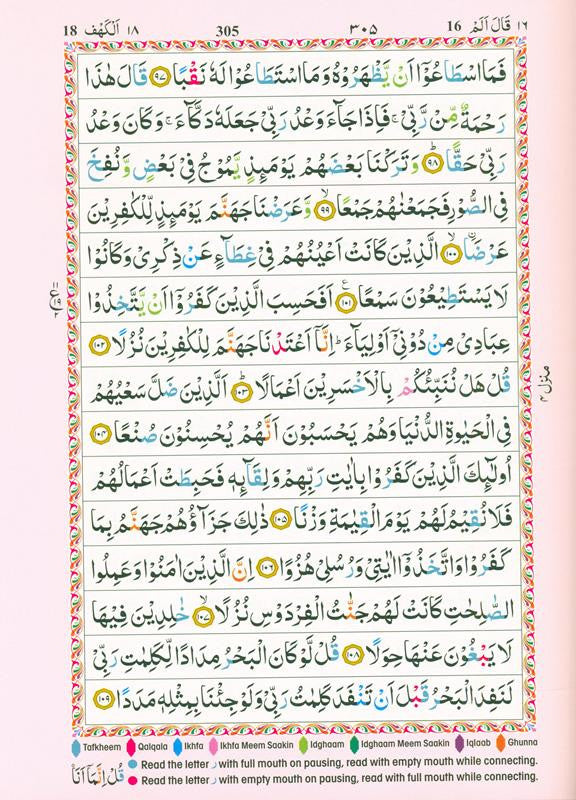 ١٦ قَالَ اَلَمْ 16 ٣٠٥ 305 ١٨ اَلْكَهْف 18
فَمَا اسْطَاعُوْۤا اَنْ يَّظْهَرُوْهُ وَ مَا اسْتَطَاعُوْا لَهٗ نَقْبًا ﴿۹۷﴾ قَالَ هٰذَا
رَحْمَةٌ مِّنْ رَّبِّيْ ۚ فَاِذَا جَآءَ وَعْدُ رَبِّيْ جَعَلَهٗ دَكَّآءَ ۚ وَ كَانَ وَعْدُ
رَبِّيْ حَقًّا ؕ﴿۹۸﴾ وَ تَرَكْنَا بَعْضَهُمْ يَوْمَىِٕذٍ يَّمُوْجُ فِيْ بَعْضٍ وَّ نُفِخَ
فِي الصُّوْرِ فَجَمَعْنٰهُمْ جَمْعًا ۙ﴿۹۹﴾ وَّ عَرَضْنَا جَهَنَّمَ يَوْمَىِٕذٍ لِّلْكٰفِرِيْنَ
عَرْضَا ۙ﴿۱۰۰﴾ الَّذِيْنَ كَانَتْ اَعْيُنُهُمْ فِيْ غِطَآءٍ عَنْ ذِكْرِيْ وَ كَانُوْا
لَا يَسْتَطِيْعُوْنَ سَمْعًا ﴿۱۰۱﴾ اَفَحَسِبَ الَّذِيْنَ كَفَرُوْۤا اَنْ يَّتَّخِذُوْا
عِبَادِيْ مِنْ دُوْنِيْۤ اَوْلِيَآءَ ؕ اِنَّاۤ اَعْتَدْنَا جَهَنَّمَ لِلْكٰفِرِيْنَ نُزُلًا ﴿۱۰۲﴾
قُلْ هَلْ نُنَبِّئُكُمْ بِالْاَخْسَرِيْنَ اَعْمَالًا ؕ﴿۱۰۳﴾ اَلَّذِيْنَ ضَلَّ سَعْيُهُمْ
فِي الْحَيٰوةِ الدُّنْيَا وَ هُمْ يَحْسَبُوْنَ اَنَّهُمْ يُحْسِنُوْنَ صُنْعًا ﴿۱۰۴﴾
اُولٰٓىِٕكَ الَّذِيْنَ كَفَرُوْا بِاٰيٰتِ رَبِّهِمْ وَ لِقَآىِٕهٖ فَحَبِطَتْ اَعْمَالُهُمْ
فَلَا نُقِيْمُ لَهُمْ يَوْمَ الْقِيٰمَةِ وَزْنًا ﴿۱۰۵﴾ ذٰلِكَ جَزَآؤُهُمْ جَهَنَّمُ بِمَا
كَفَرُوْا وَ اتَّخَذُوْۤا اٰيٰتِيْ وَ رُسُلِيْ هُزُوًا ﴿۱۰۶﴾ اِنَّ الَّذِيْنَ اٰمَنُوْا وَ عَمِلُوا
الصّٰلِحٰتِ كَانَتْ لَهُمْ جَنّٰتُ الْفِرْدَوْسِ نُزُلًا ۙ﴿۱۰۷﴾ خٰلِدِيْنَ فِيْهَا
لَا يَبْغُوْنَ عَنْهَا حِوَلًا ﴿۱۰۸﴾ قُلْ لَّوْ كَانَ الْبَحْرُ مِدَادًا لِّكَلِمٰتِ رَبِّيْ
لَنَفِدَ الْبَحْرُ قَبْلَ اَنْ تَنْفَدَ كَلِمٰتُ رَبِّيْ وَ لَوْ جِئْنَا بِمِثْلِهٖ مَدَدًا ﴿۱۰۹﴾
منزل ٤
Tafkheem Qalqala Ikhfa Ikhfa Meem Saakin Idghaam Idghaam Meem Saakin Iqlaab Ghunna
Read the letter ر with full mouth on pausing, read with empty mouth while connecting.
Read the letter ر with empty mouth on pausing, read with full mouth while connecting.
قُلْ اِنَّمَاۤ اَنَا